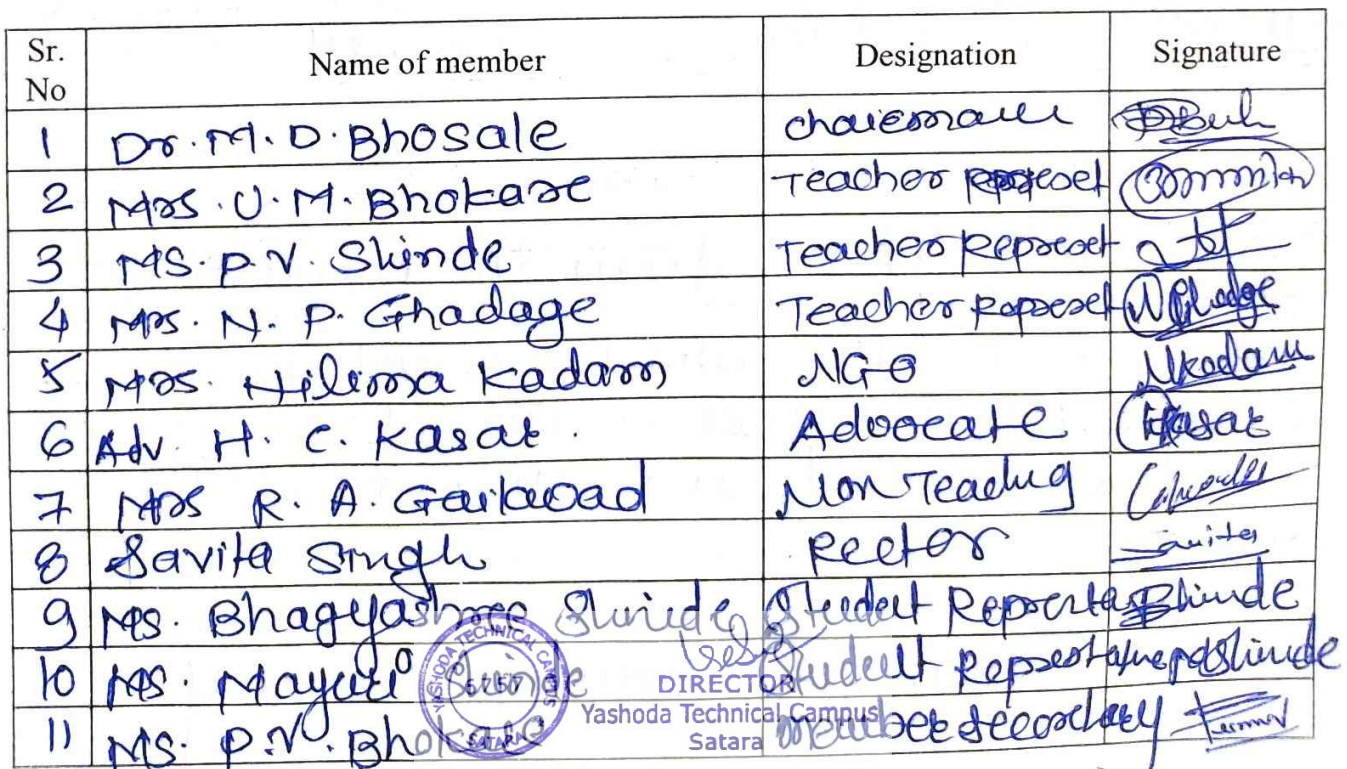 Sr. No Name of member Designation Signature
1 Dr. M. D. Bhosale chairman
2 Mrs. U. M. Bhokare Teacher Represet
3 MS. P. V. Shinde Teacher Represet
4 Mrs. N. P. Ghadage Teacher Represet
5 Mrs. Nilima Kadam NGO NKadam
6 Adv. H. C. Kasat. Advocate HKasat
7 Mrs R. A. Gaikwad Non Teachig
8 Savita Singh Rector Savita
9 Ms. Bhagyashree Shinde Student Represta BShinde
10 Ms. Mayuri Shinde Student Represtative MShinde
11 MS. P. V. Bhokare member secordary
YASHODA TECHNICAL CAMPUS
SATARA
DIRECTOR
Yashoda Technical Campus
Satara